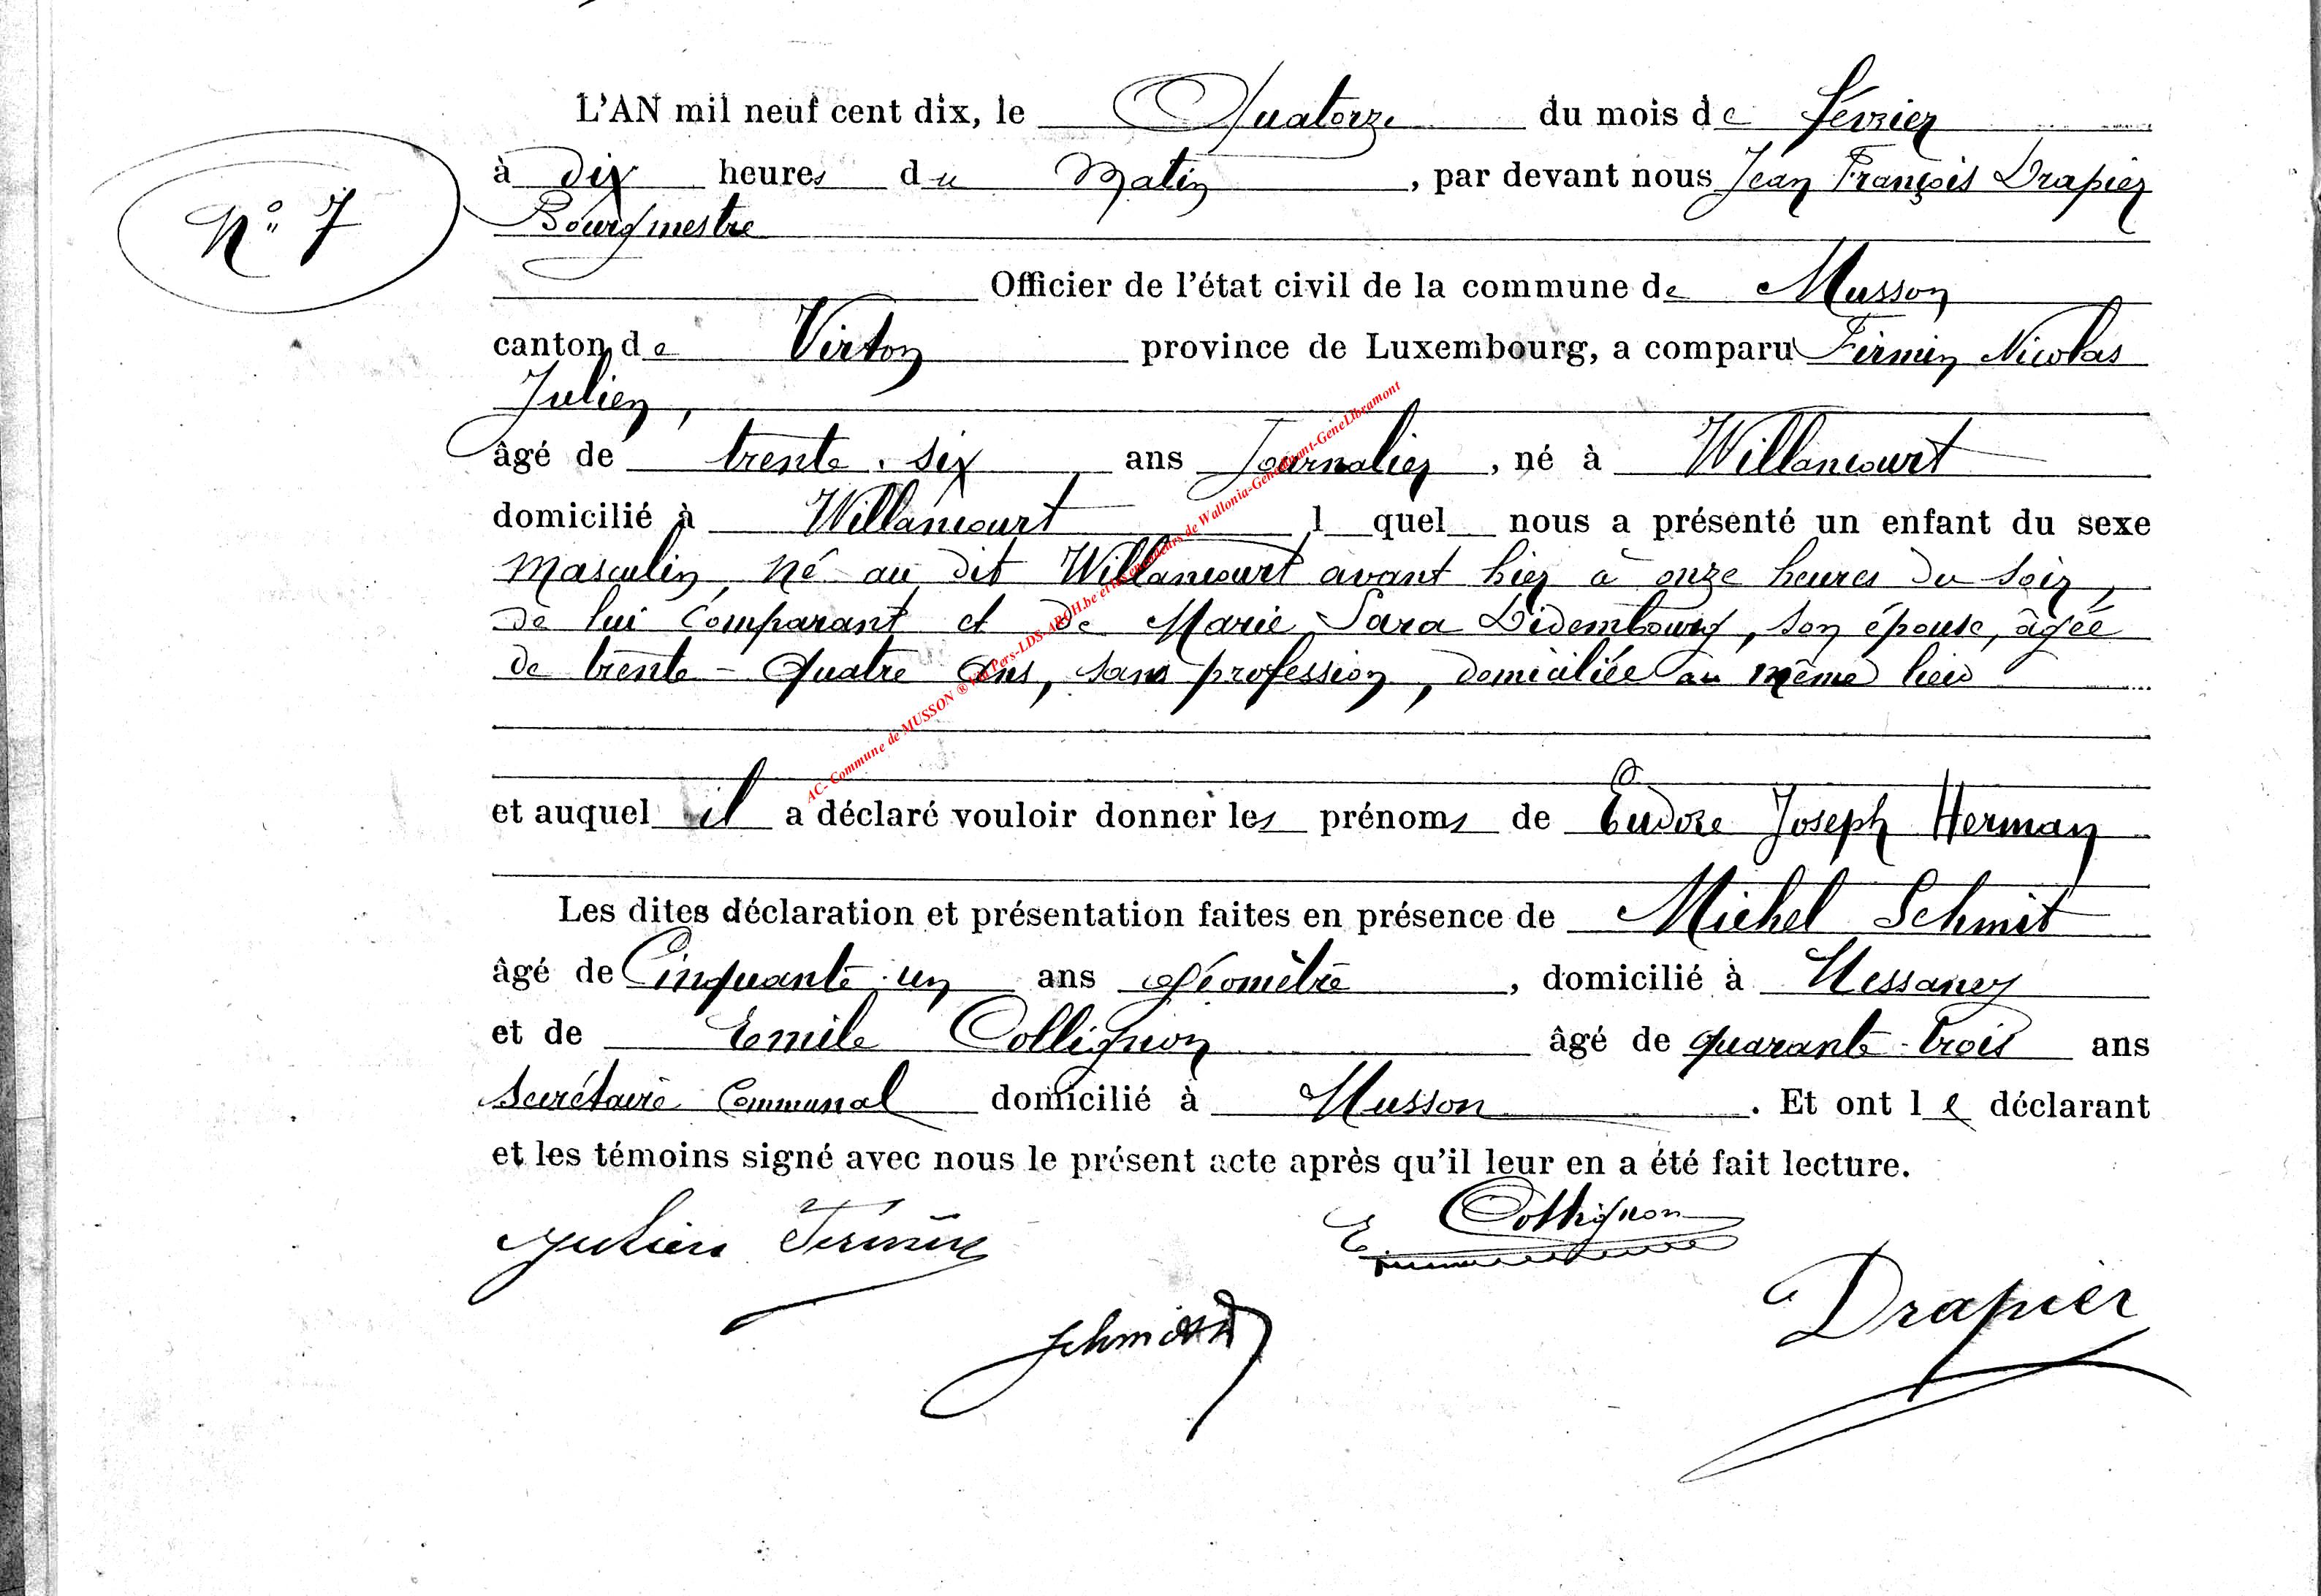 L'AN mil neuf cent dix, le Quatorze du mois de février
à dix heures du Matin, par devant nous Jean François Drapier
Bourgmestre
N° 7
Officier de l'état civil de la commune de Musson
canton de Virton province de Luxembourg, a comparu Firmin Nicolas
Julien,
âgé de trente-six ans Journalier, né à Willancourt
domicilié à Willancourt l quel nous a présenté un enfant du sexe
masculin, né au dit Willancourt avant hier à onze heures du soir,
de lui Comparant et de Marie Sara Didembourg, son épouse, âgée
de trente-quatre ans, sans profession, domiciliée au même lieu
et auquel il a déclaré vouloir donner les prénoms de Eudore Joseph Herman
Les dites déclaration et présentation faites en présence de Michel Schmit
âgé de Cinquante-un ans géomètre, domicilié à Messancy
et de Emile Collignon âgé de quarante-trois ans
secrétaire Communal domicilié à Musson. Et ont le déclarant
et les témoins signé avec nous le présent acte après qu'il leur en a été fait lecture.
Julien Firmin
E. Collignon
Schmit
Drapier
AC- Commune de MUSSON ® Pers-LDS-ARCH.be et les encodeurs de Wallonia-GeneLibramont